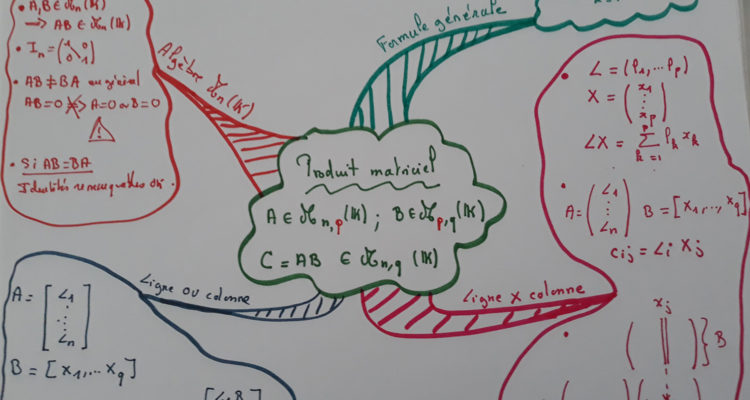 • A, B ∈ ℳn(𝕂)
→ AB ∈ ℳn(𝕂)
• In = (1 0 0 1)
• AB ≠ BA en général
AB = 0 ⇏ A = 0 ou B = 0
!
• Si AB = BA
Identités remarquables OK.
Algèbre ℳn(𝕂)
Formule générale
Produit matriciel
A ∈ ℳn,p(𝕂) ; B ∈ ℳp,q(𝕂)
C = AB ∈ ℳn,q (𝕂)
• L = (l1, ... lp)
X = (x1 ⋮ xp)
LX = Σ k=1 p lk xk
• A = (L1 ⋮ Ln) B = [X1, ..., Xq]
cij = Li Xj
Ligne X colonne
Xj
• ( || ) } B
Ligne ou colonne
A = [L1 ⋮ Ln]
B = [X1, ... Xq]